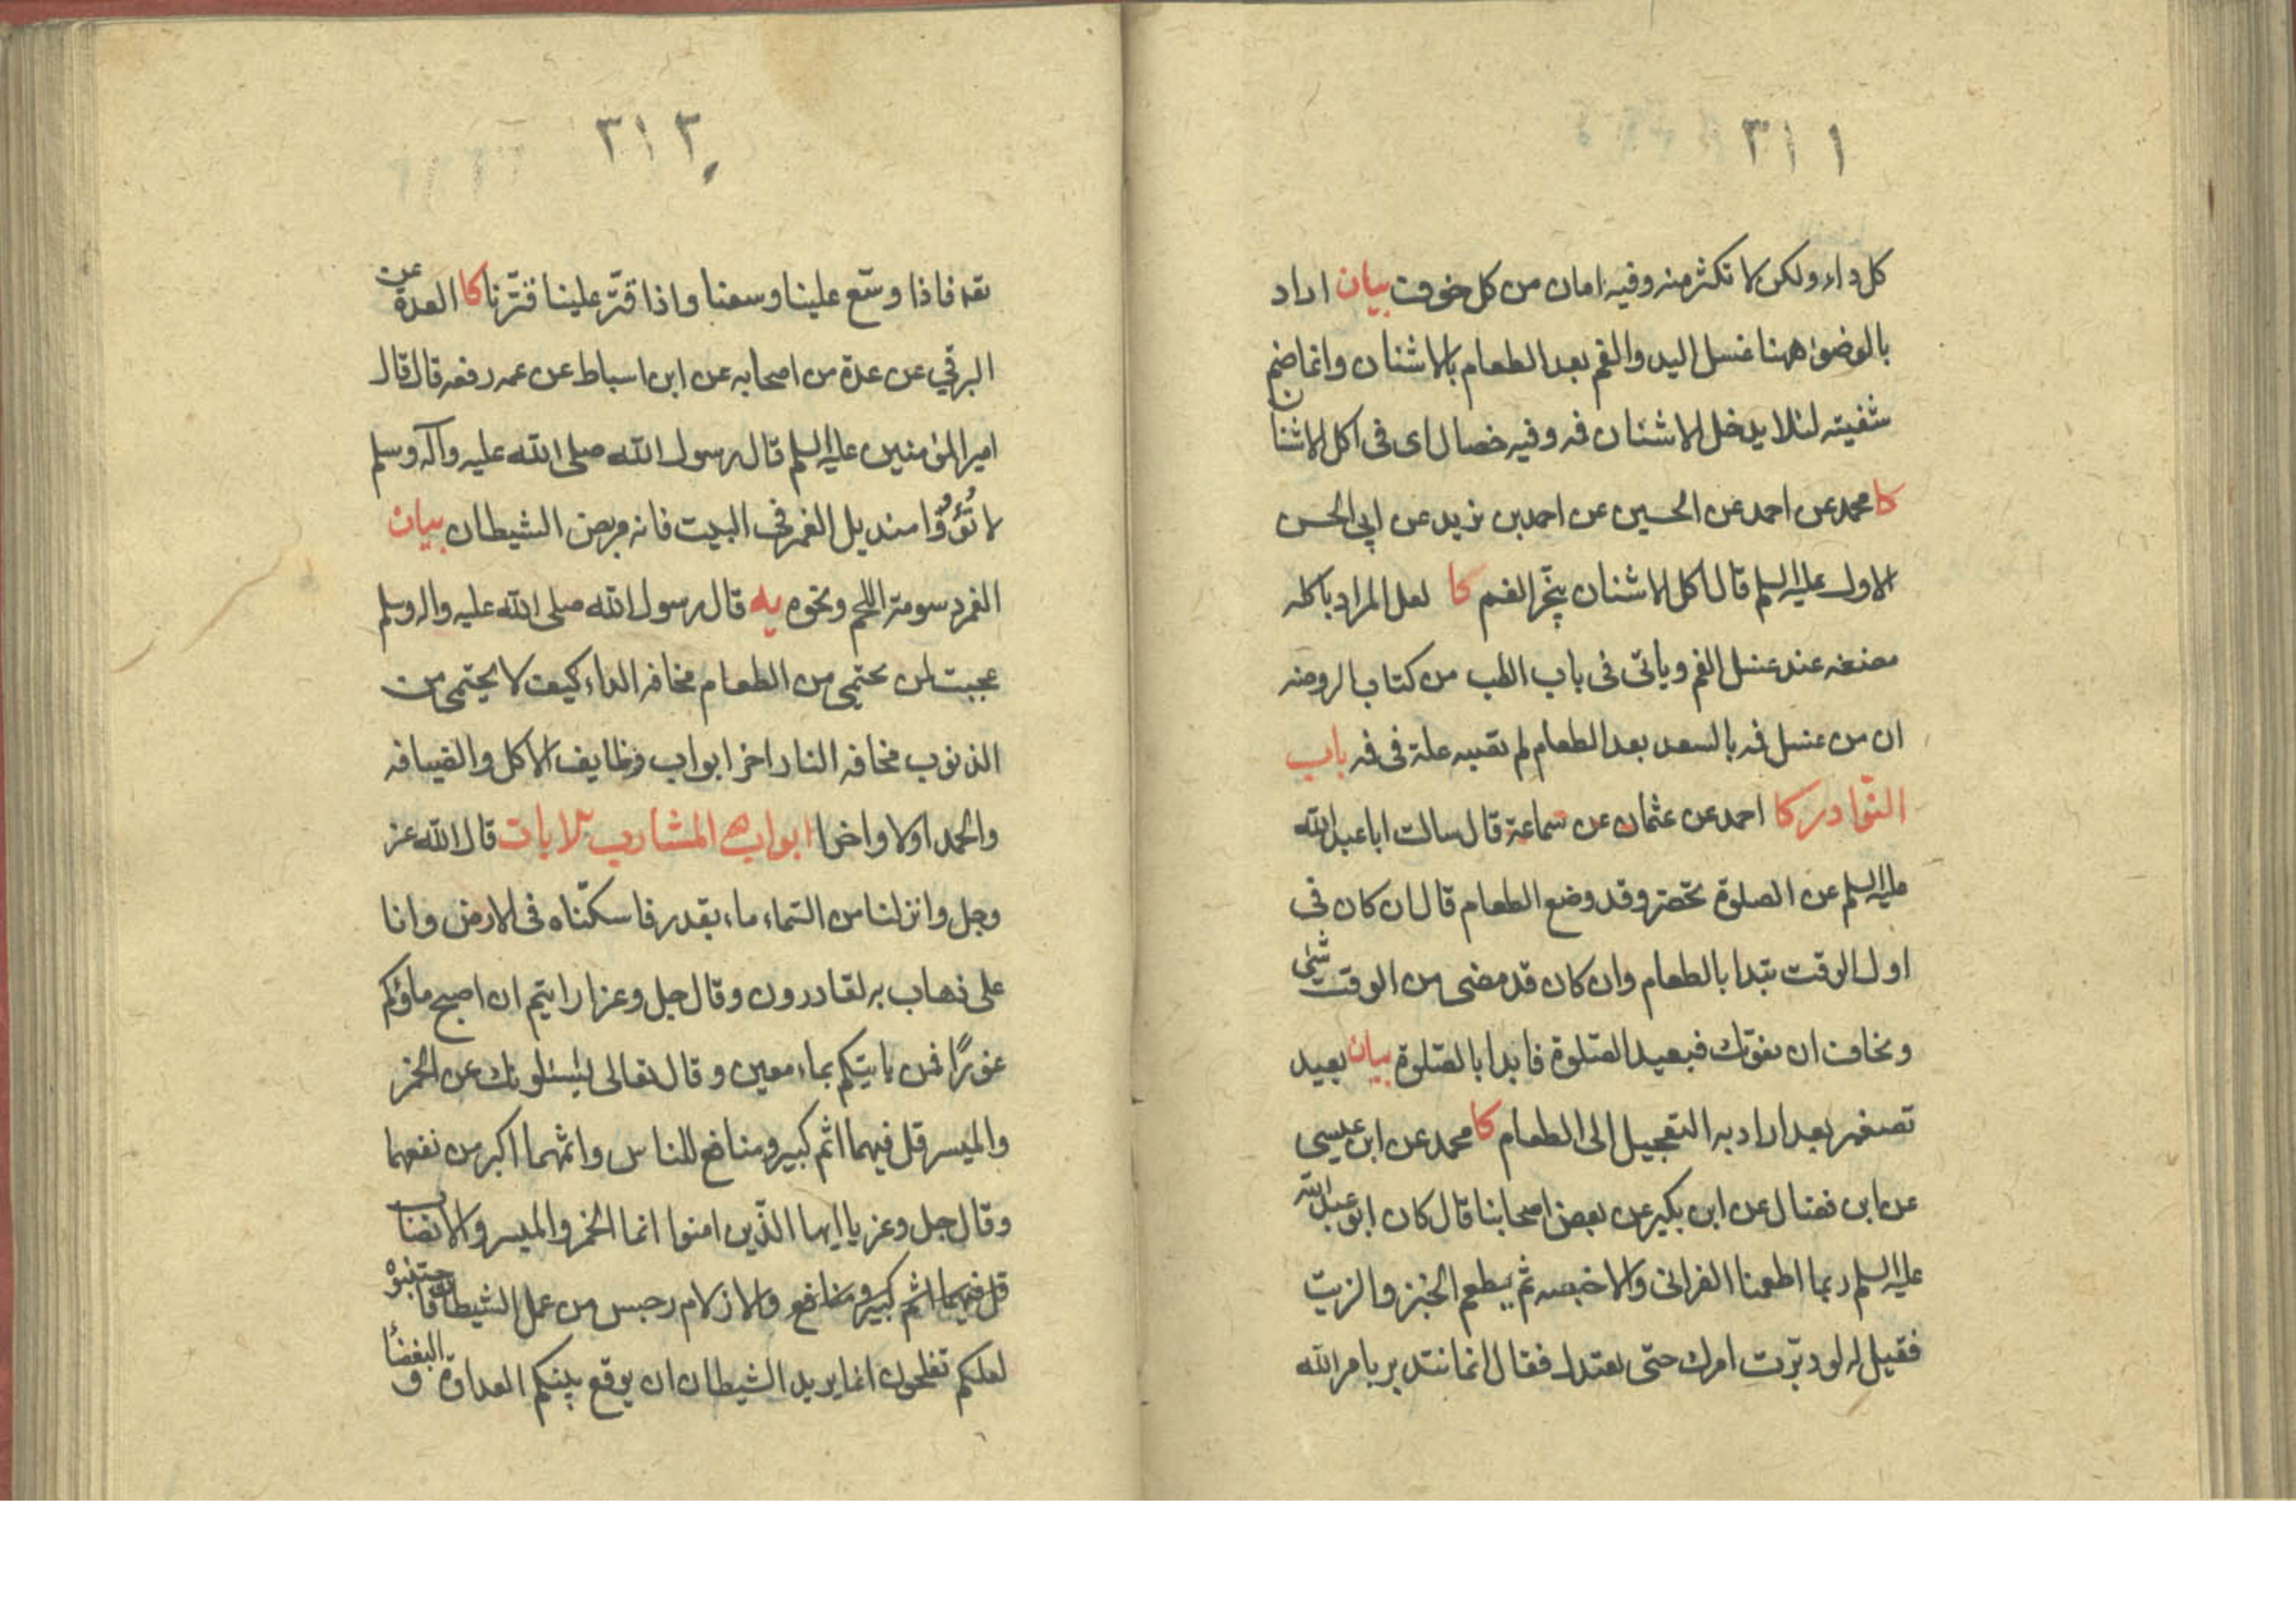 ٣١١
كل داء ولكن لا تكثر منه وفيه امان من كل خوف بيان اراد
بالوضوء ههنا غسل اليد والفم بعد الطعام بالاشنان وانما ضم
شفيته لئلا يدخل الاشنان فه وفيه خصال اى فى اكل الاشنان
كا محمد عن احمد عن الحسين عن احمد بن يزيد عن ابى الحسن
الاول عليه السلم قال اكل الاشنان يبخر الفم كا لعل المراد باكله
مضغه عند غسل الفم وياتى فى باب الطب من كتاب الروضه
ان من غسل فه بالسعد بعد الطعام لم تصبه علة فى فه باب
النوادر كا احمد عن عثمان عن سماعة قال سالت ابا عبد الله
عليه السلم عن الصلوة تحضر وقد وضع الطعام قال ان كان فى
اول الوقت يبدا بالطعام وان كان قد مضى من الوقت شئى
وتخاف ان تفوتك فبعيد الصلوة فابدا بالصلوة بيان بعيد
تصغير بعد اراد به التعجيل الى الطعام كا محمد عن ابن عيسى
عن ابن فضال عن ابن بكير عن بعض اصحابنا قال كان ابو عبد الله
عليه السلم ربما اطعمنا الفرانى والاخبصه ثم يطعم الخبز والزيت
فقيل له لو دبرت امرك حتى يعتدل فقال انما نتدبر بامر الله
٣١٢
فاذا وسّع علينا وسعنا واذا قتّر علينا قتّرنا كا العدة عن
البرقي عن عدة من اصحابه عن ابن اسباط عن عمه رفعه قال قال
امير المؤمنين عليه السلم قال رسول الله صلى الله عليه وآله وسلم
لا تُؤوُوا منديل الغمر فى البيت فانه مربض الشيطان بيان
الغمر دسومة اللحم ونحوه يه قال رسول الله صلى الله عليه واله وسلم
عجبت لمن يحتمى من الطعام مخافه الداء كيف لا يحتمى من
الذنوب مخافه النار اخر ابواب وظايف الاكل والضيافه
والحمد اولا واخرا ابواب المشارب الايات قال الله عز
وجل وانزلنا من السّماء ماء بقدر فاسكنّاه فى الارض وانا
على ذهاب به لقادرون وقال جل وعز ارايتم ان اصبح ماؤكم
غورًا فمن ياتيكم بماء معين وقال تعالى يسئلونك عن الخمر
والميسر قل فيهما اثم كبير ومنافع للناس واثمهما اكبر من نفعهما
وقال جل وعز يا ايها الذّين امنوا انما الخمر والميسر والانصاب
قل فيهما اثم كبير ومنافع والازلام رجس من عمل الشيطان فاجتنبوه
لعلكم تفلحون انما يريد الشيطان ان يوقع بينكم العداوة و البغضا